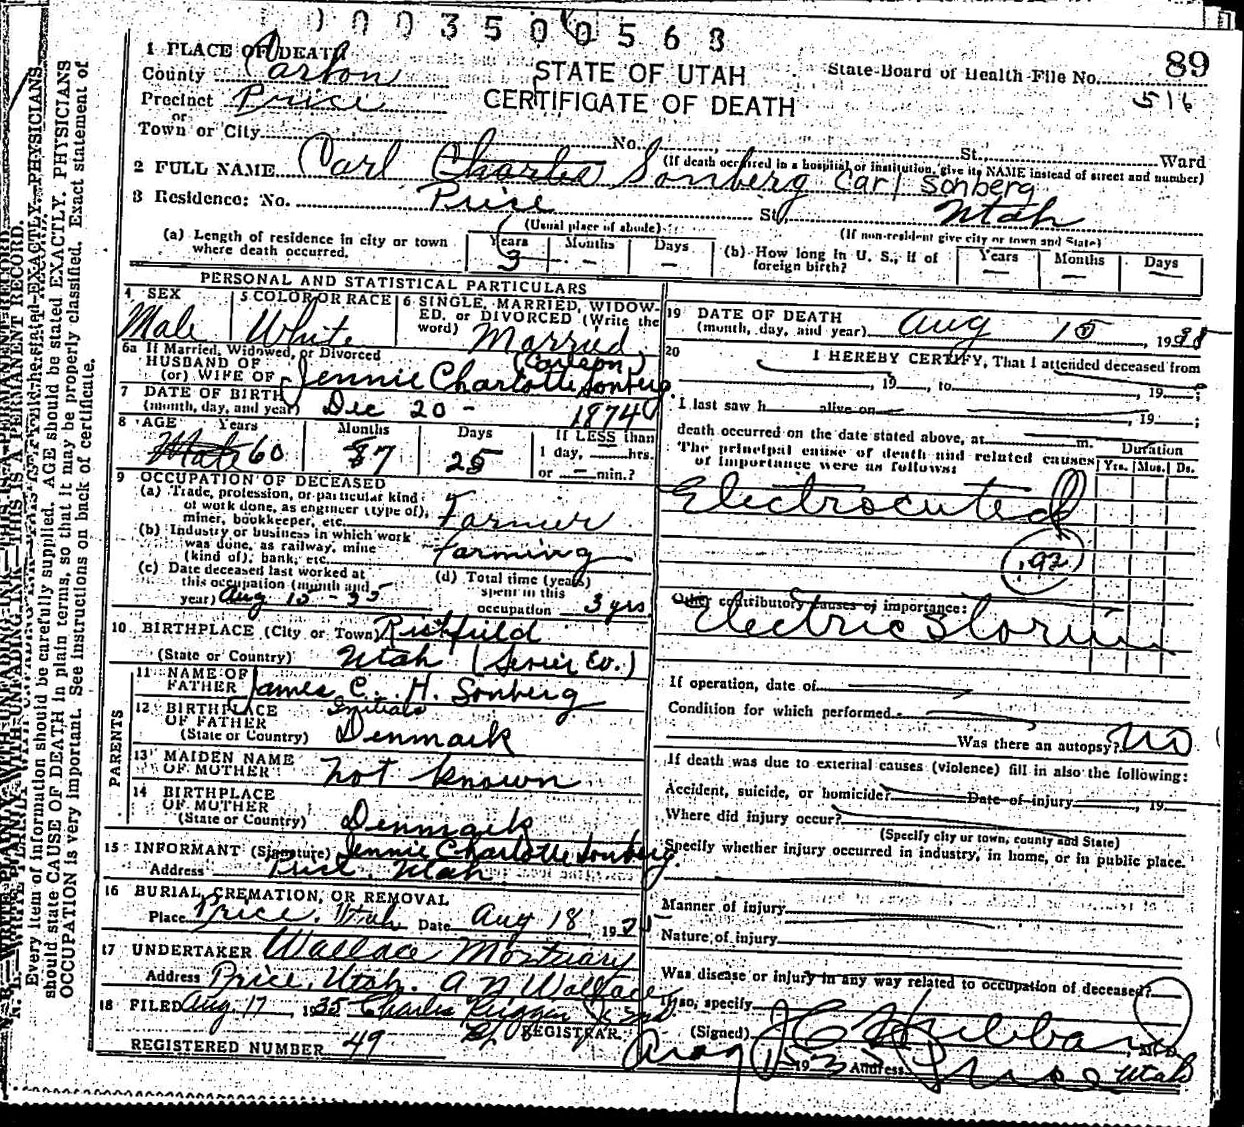 0003500568
1 PLACE OF DEATH
County Carbon
STATE OF UTAH
State Board of Health File No. 89
Precinct Price
CERTIFICATE OF DEATH
516
or
Town or City
No.
St.
Ward
(If death occurred in a hospital or institution, give its NAME instead of street and number)
2 FULL NAME Carl Charles Sonberg Carl Sonberg
3 Residence: No. Price St., Utah
(Usual place of abode)
(If non-resident give city or town and State)
(a) Length of residence in city or town where death occurred.
Years 3 Months — Days —
(b) How long in U. S., if of foreign birth?
Years — Months — Days —
PERSONAL AND STATISTICAL PARTICULARS
4 SEX
Male
5 COLOR OR RACE
White
6 SINGLE, MARRIED, WIDOWED, or DIVORCED (Write the word)
Married
6a If Married, Widowed, or Divorced
HUSBAND OF
(or) WIFE OF
(Carlson)
Jennie Charlotte Sonberg
7 DATE OF BIRTH
(month, day, and year) Dec 20 - 1874
8 AGE Years 60 Months 7 Days 25
If LESS than
1 day, hrs.
or min.?
9 OCCUPATION OF DECEASED
(a) Trade, profession, or particular kind of work done, as engineer (type of), miner, bookkeeper, etc. Farmer
(b) Industry or business in which work was done, as railway, mine (kind of), bank, etc. Farming
(c) Date deceased last worked at this occupation (month and year) Aug 15 - 35
(d) Total time (years) spent in this occupation 3 yrs
10 BIRTHPLACE (City or Town) Richfield
(State or Country) Utah (Sevier Co.)
PARENTS
11 NAME OF FATHER James C. H. Sonberg
Initials
12 BIRTHPLACE OF FATHER
(State or Country) Denmark
13 MAIDEN NAME OF MOTHER not known
14 BIRTHPLACE OF MOTHER
(State or Country) Denmark
15 INFORMANT (Signature) Jennie Charlotte Sonberg
Address Price, Utah
16 BURIAL, CREMATION, OR REMOVAL
Place Price, Utah Date Aug 18, 1935
17 UNDERTAKER Wallace Mortuary
Address Price, Utah. A N Wallace
18 FILED Aug. 17 1935 Charles
REGISTRAR.
REGISTERED NUMBER 49
19 DATE OF DEATH
(month, day, and year) Aug 15, 19
20 I HEREBY CERTIFY, That I attended deceased from
, 19 , to , 19 ;
I last saw h alive on , 19 ;
death occurred on the date stated above, at m.
The principal cause of death and related causes of importance were as follows:
Duration
Yrs. Mos. Ds.
Electrocuted
192
Other contributory causes of importance:
Electric Storm
If operation, date of
Condition for which performed
Was there an autopsy? No
If death was due to external causes (violence) fill in also the following:
Accident, suicide, or homicide? Date of injury , 19
Where did injury occur?
(Specify city or town, county and State)
Specify whether injury occurred in industry, in home, or in public place.
Manner of injury
Nature of injury
Was disease or injury in any way related to occupation of deceased?
If so, specify
(Signed) J C Hubbard, M.D.
Aug 15 1935 Address Price Utah
Every item of information should be carefully supplied. AGE should be stated EXACTLY. PHYSICIANS
should state CAUSE OF DEATH in plain terms, so that it may be properly classified. Exact statement of
OCCUPATION is very important. See instructions on back of certificate.